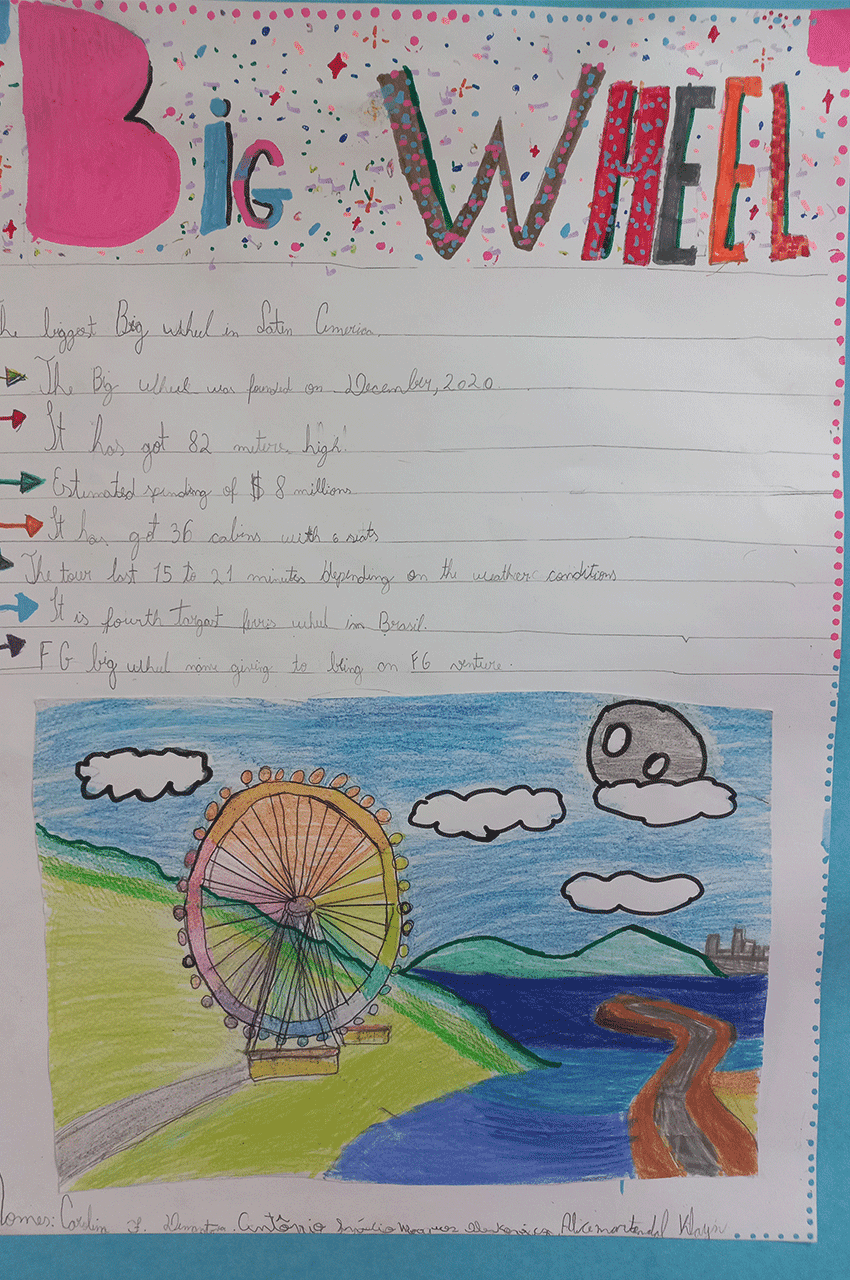 BiG WHEEL
he biggest Big wheel in Laten America.
The Big wheel was founded on December, 2020
It has got 82 meters high!
Estimated spending of $ 8 millions
It has got 36 cabins with 6 seats
The tour last 15 to 21 minutes depending on the weather conditions
It is fourth targest ferris wheel in Brasil.
FG big wheel name giving to bling on FG venture.
Nomes: António Inácio